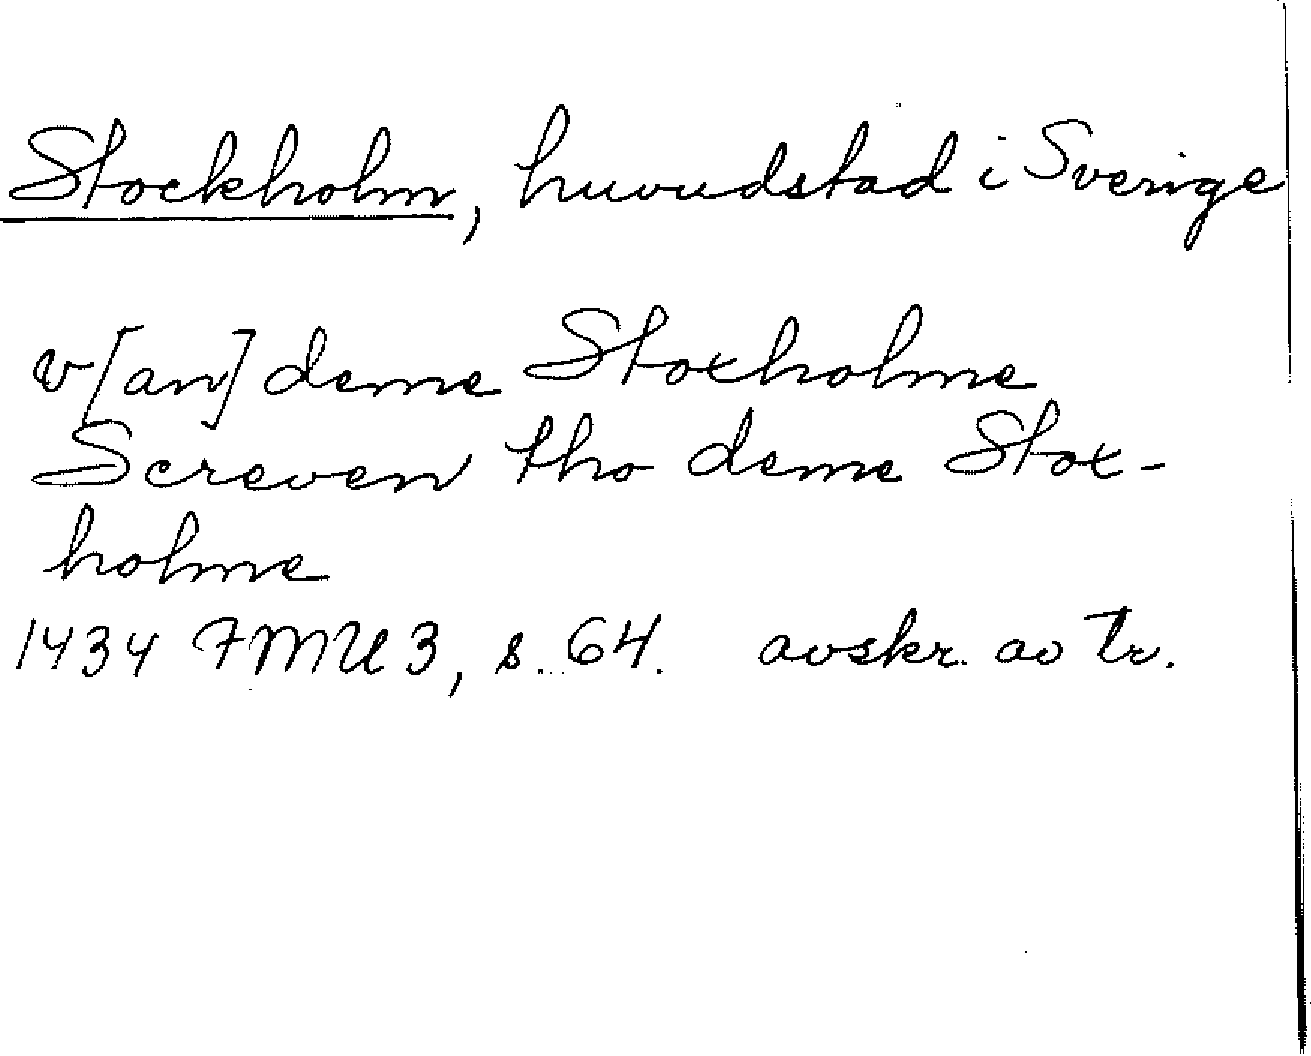 Stockholm, huvudstad i Sverige
v[an] deme Stoxholme
Screven tho deme Stox-
holme
1434 FMU 3, s. 64. avskr. av tr.